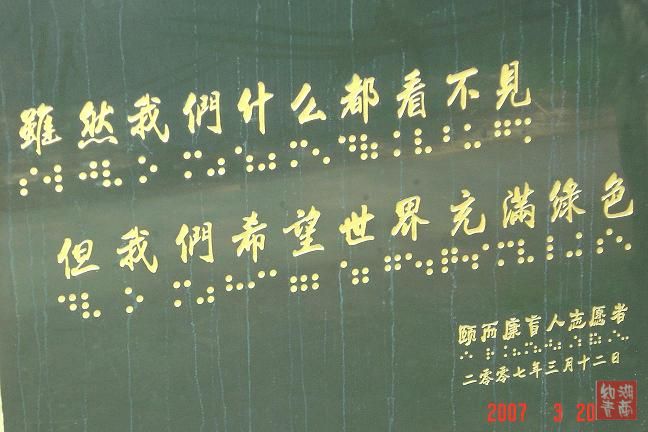 雖然我們什么都看不見
但我們希望世界充滿綠色
颐而康盲人志愿者
二零零七年三月十二日
2007 3 20